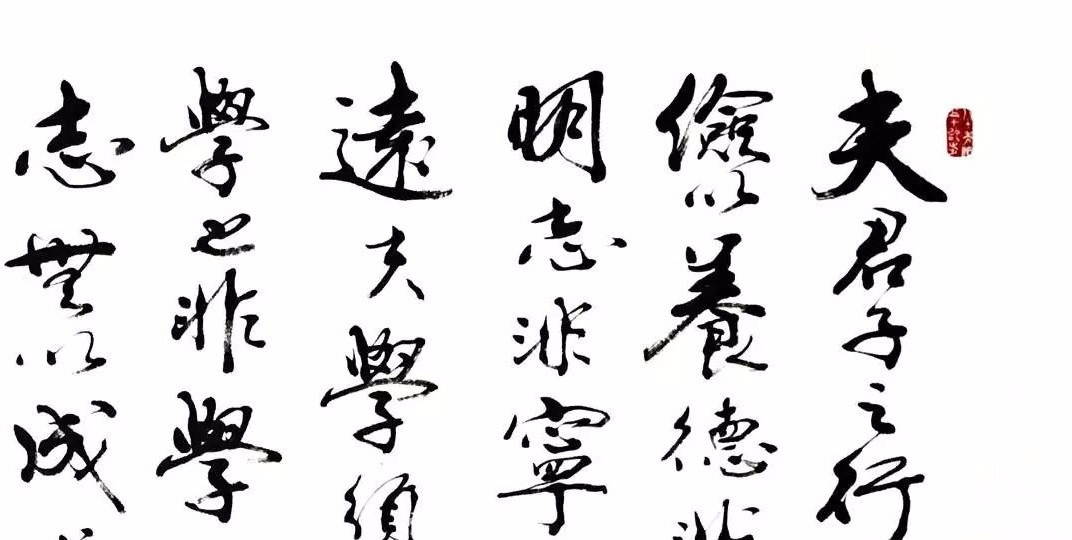 夫君子之行
儉以養德非
明志非寧
遠夫學須
學也非學
志無以成